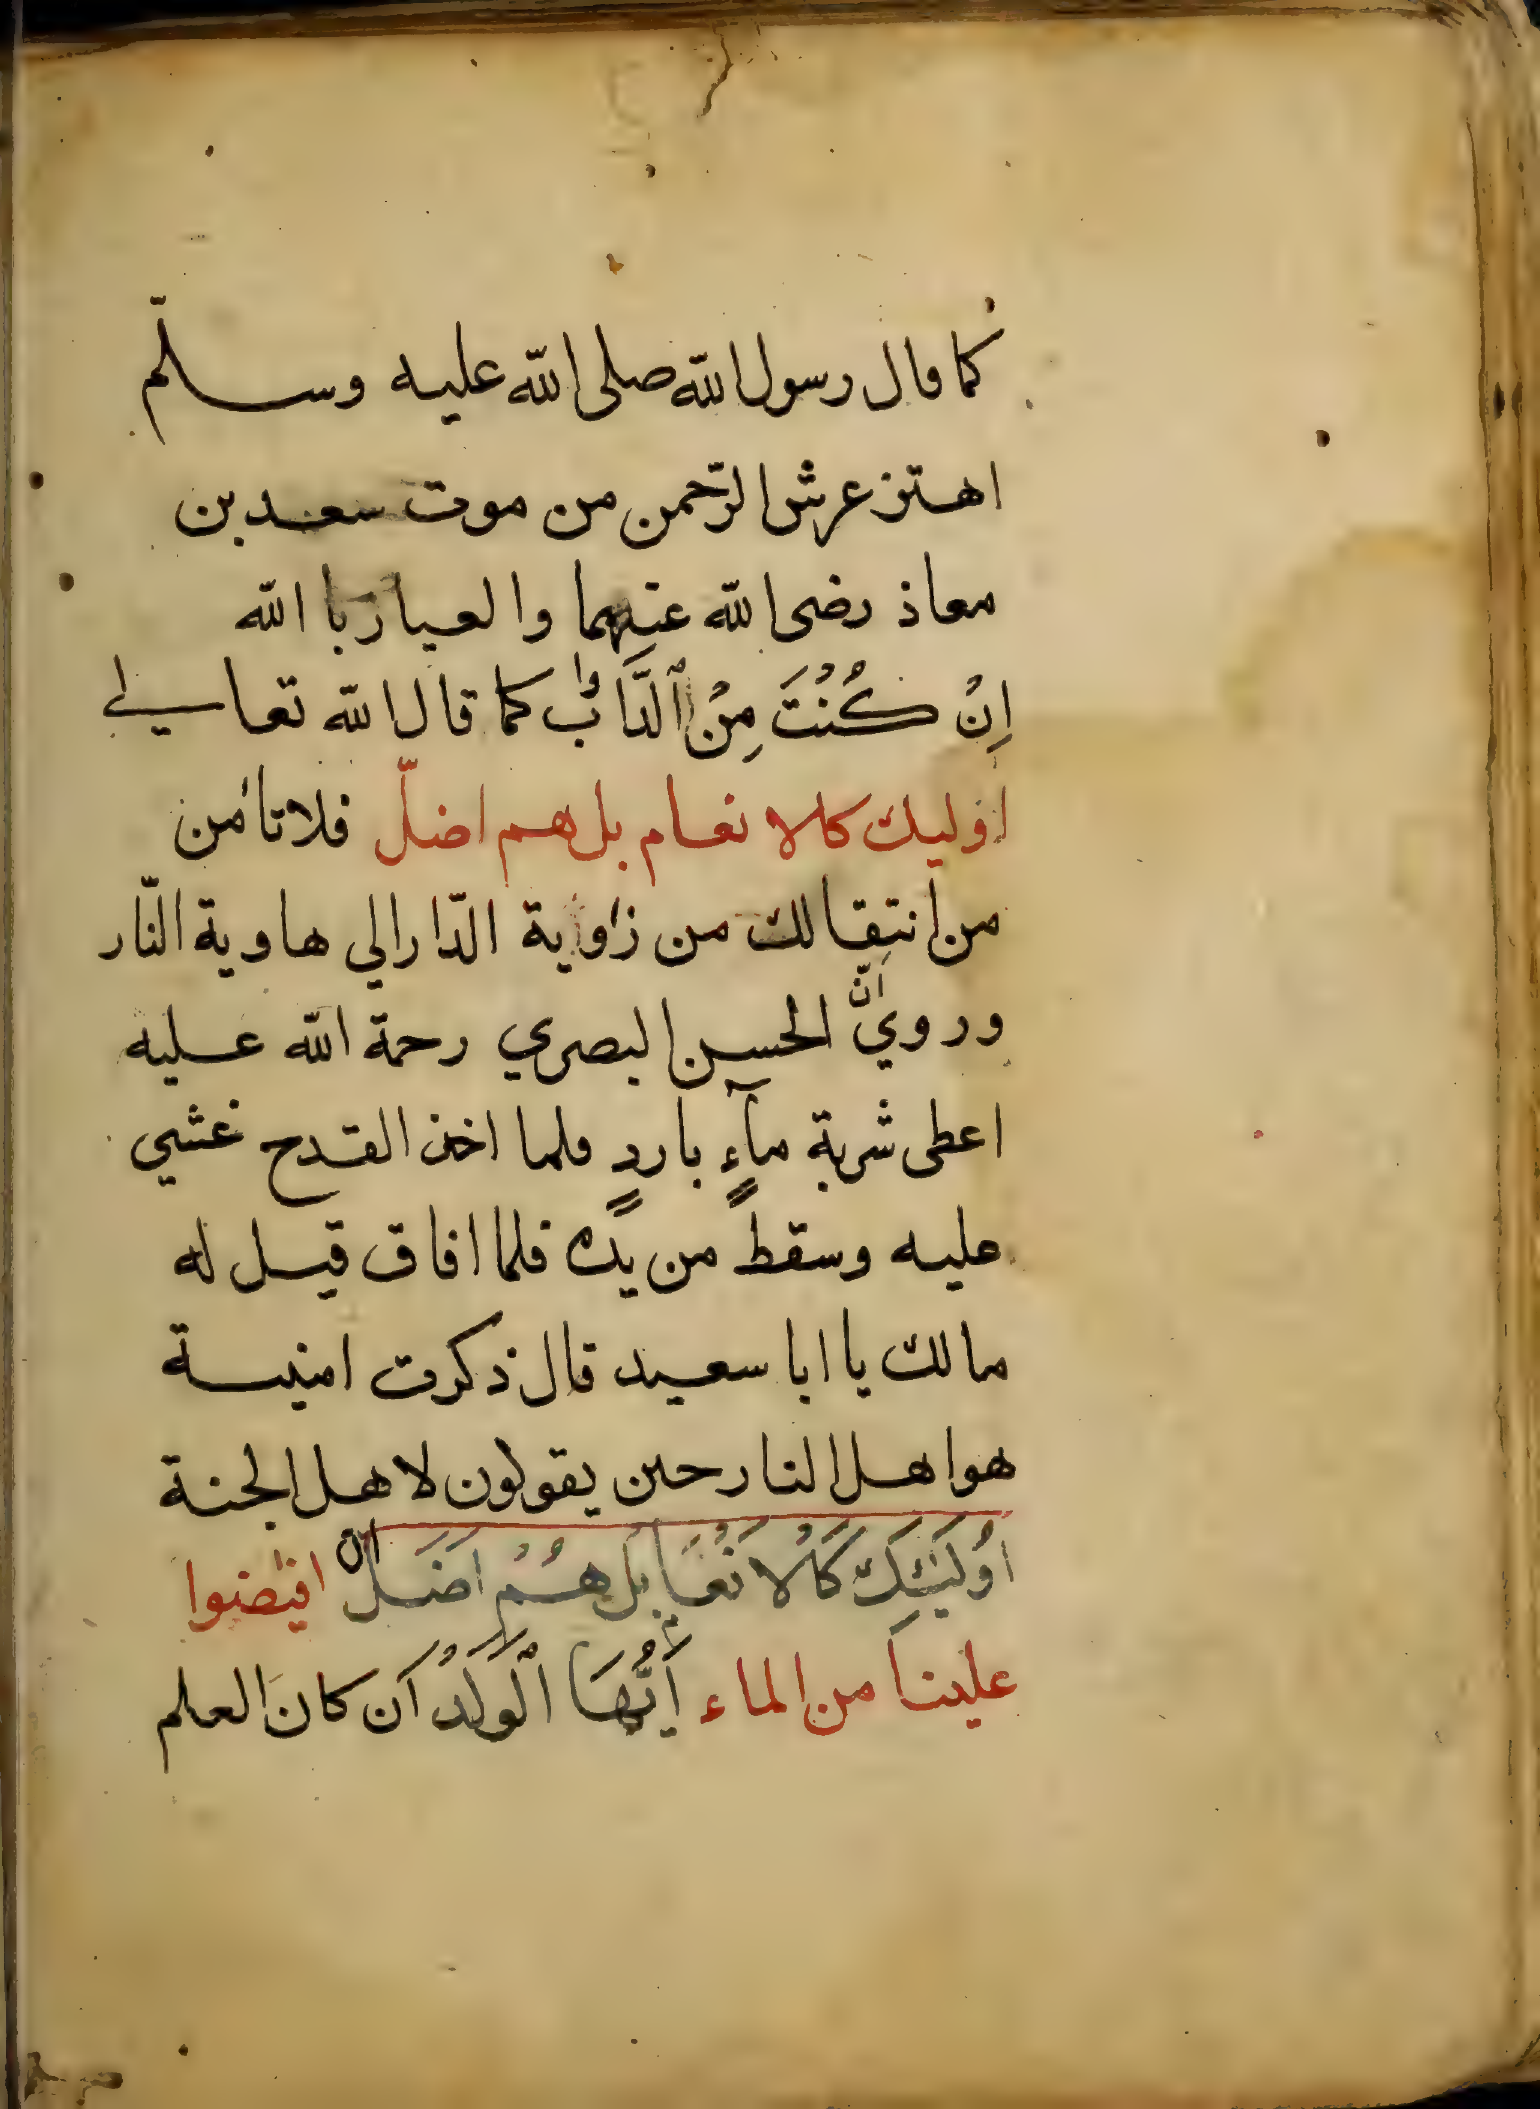 كما قال رسول الله صلى الله عليه وسلّم
اهتز عرش الرّحمن من موت سعد بن
معاذ رضى الله عنهما والعياذ با الله
اِنْ كُنْتَ مِنْ الدَّاوٰبِ كما قال الله تعالى
اوليك كالانعام بل هم اضلّ فلا تأمن
من انتِقالك من زاوية الدّار الي هاوية النّار
وروي انّ الحسن البصري رحمة الله عليه
اعطى شربة مآءٍ باردٍ فلما اخذ القدح غشي
عليه وسقط من يده فلما افاق قيل له
مالك يا ابا سعيد قال ذكرت امنيسة
هوا هل النار حين يقولون لاهل الجنة
اُولَئِكَ كَالانْعَا بَلْ هُمْ اَضَلّ ان افيضوا
علينا من الماء اَيُّهَا الْوَلَدُ اَن كانَ العلم